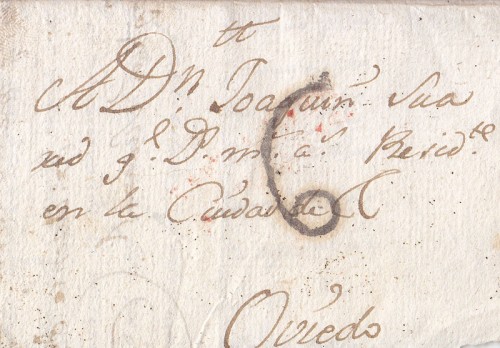 tt
A Dn Joaquin Sua
red ge. De. ms. as. Residte
en la Ciudad de
Oviedo